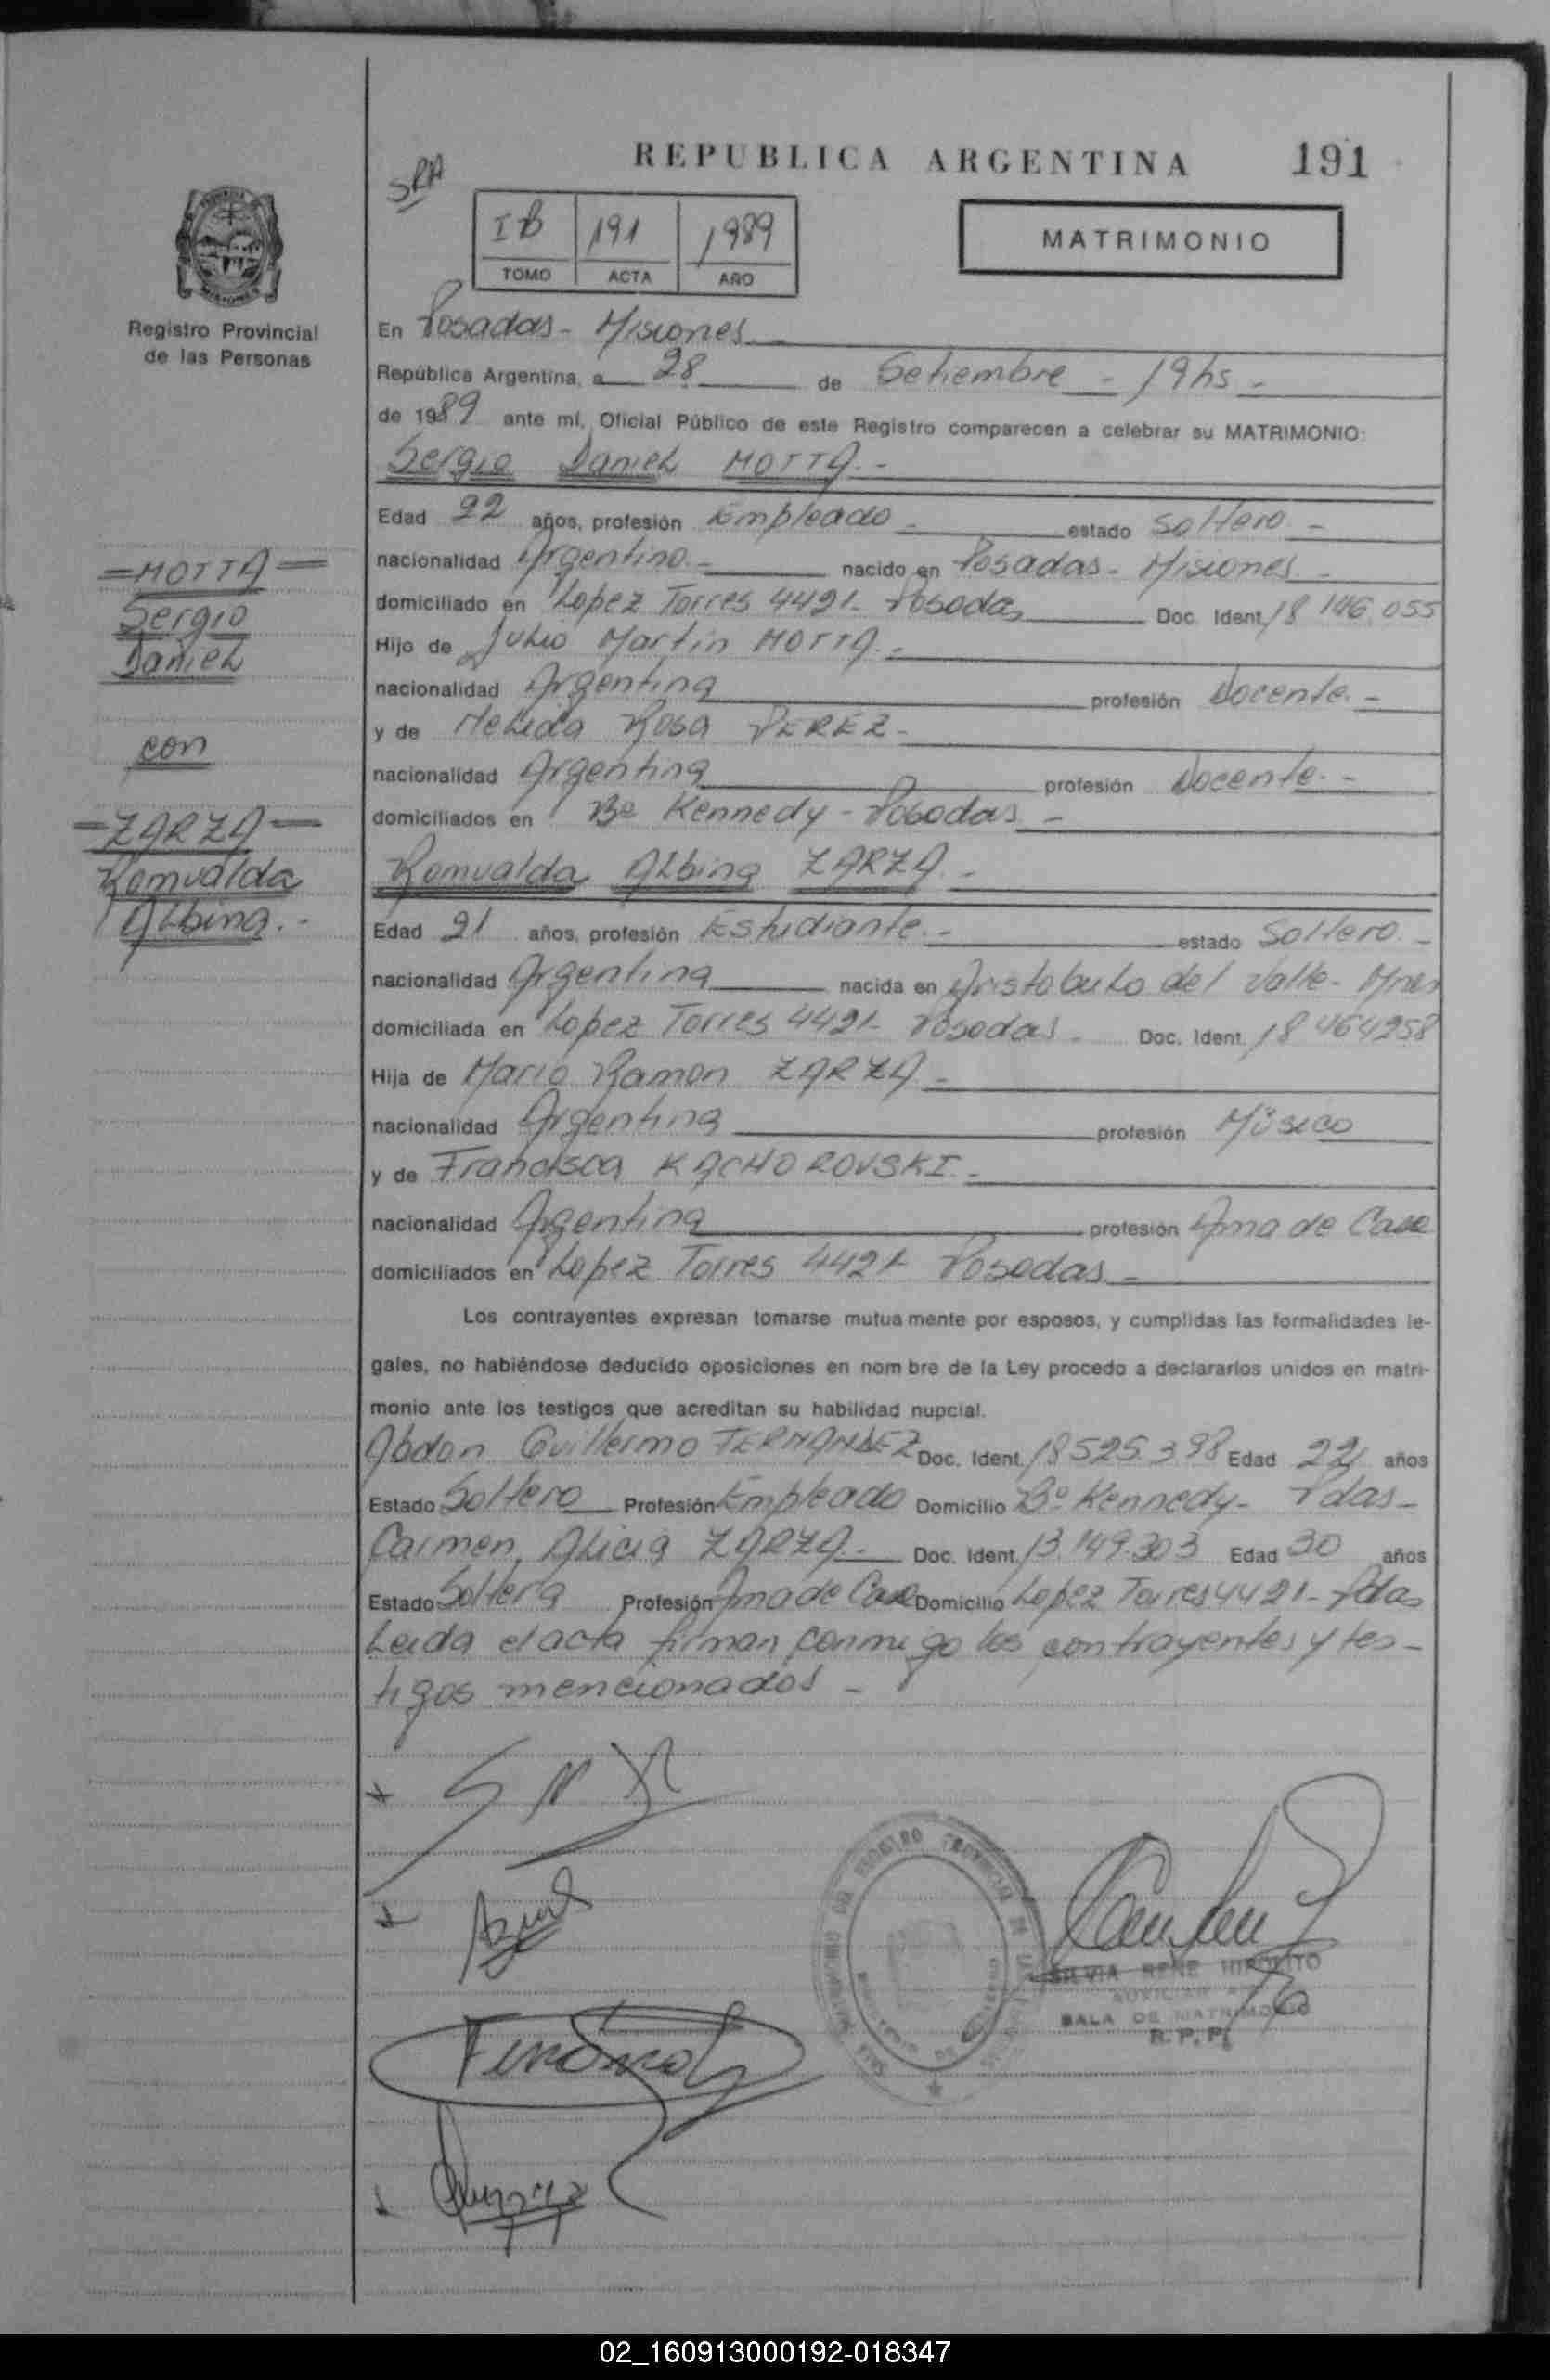 REPUBLICA ARGENTINA 191
SRA
IB 191 1989
TOMO ACTA AÑO
MATRIMONIO
Registro Provincial
de las Personas
En Posadas - Misiones
República Argentina, a 28 de Setiembre - 19 hs -
de 1989 ante mí, Oficial Público de este Registro comparecen a celebrar su MATRIMONIO:
Sergio Daniel MOTTA.-
Edad 22 años, profesión Empleado - estado Soltero -
nacionalidad Argentino.- nacido en Posadas - Misiones -
domiciliado en Lopez Torres 4421- Posadas Doc. Ident. 18 146.055
Hijo de Julio Martin MOTTA.-
nacionalidad Argentina profesión Docente.-
y de Melida Rosa PEREZ-
nacionalidad Argentina profesión Docente.-
domiciliados en Bº Kennedy - Posadas -
Romualda Albina ZARZA.-
Edad 21 años, profesión Estudiante.- estado Soltero.-
nacionalidad Argentina nacida en Aristobulo del Valle - Mnes
domiciliada en Lopez Torres 4421- Posadas - Doc. Ident. 18 464258
Hija de Mario Ramon ZARZA -
nacionalidad Argentina profesión Músico
y de Francisca KACHOROVSKI.-
nacionalidad Argentina profesión Ama de Casa
domiciliados en Lopez Torres 4421- Posadas -
Los contrayentes expresan tomarse mutuamente por esposos, y cumplidas las formalidades le-
gales, no habiéndose deducido oposiciones en nombre de la Ley procedo a declararlos unidos en matri-
monio ante los testigos que acreditan su habilidad nupcial.
Abdon Guillermo FERNANDEZ Doc. Ident. 18525.398 Edad 22 años
Estado Soltero Profesión Empleado Domicilio Bº Kennedy - Pdas -
Carmen, Alicia ZARZA.- Doc. Ident. 13.149.303 Edad 30 años
Estado Soltera Profesión Ama de Casa Domicilio Lopez Torres 4421 - Pdas
Leida el acta firman conmigo los contrayentes y tes-
tigos mencionados -
=MOTTA=
Sergio
Daniel
con
-ZARZA-
Romualda
Albina.-
SILVIA RENE HIPOLITO
SALA DE MATRIMONIO
R.P.P.
02_160913000192-018347